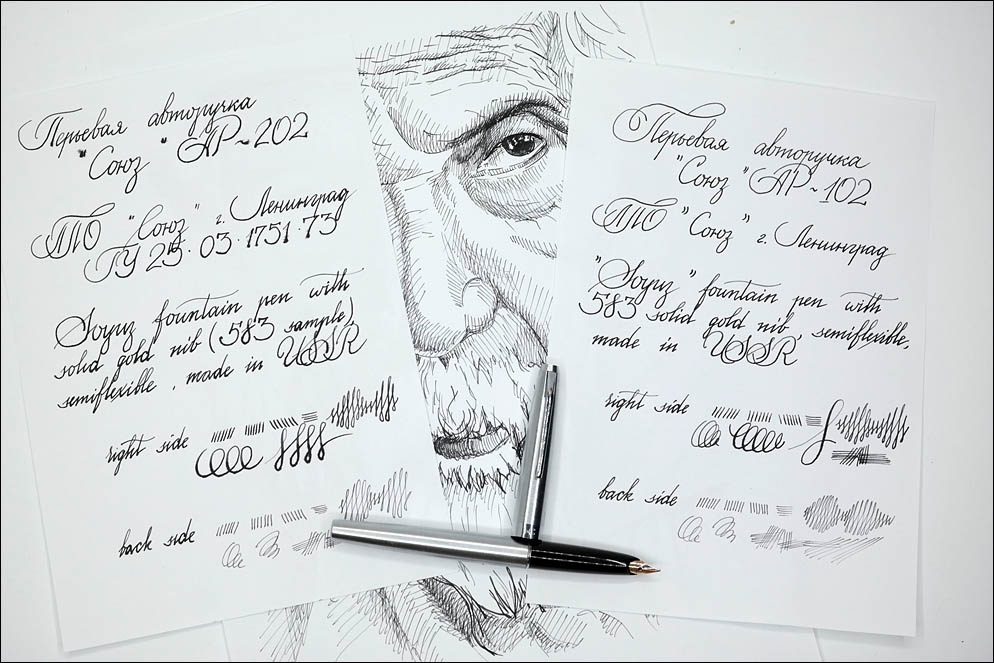 Перьевая авторучка
"Союз" АР~202
ЛПО "Союз" г. Ленинград
ТУ 25·03·1751·73
Soyuz fountain pen with
solid gold nib (583 sample)
semiflexible, made in USSR
right side
back side
Перьевая авторучка
"Союз" АР~102
ЛПО "Союз" г. Ленинград
"Soyuz" fountain pen with
583 solid gold nib, semiflexible,
made in USSR
right side
back side